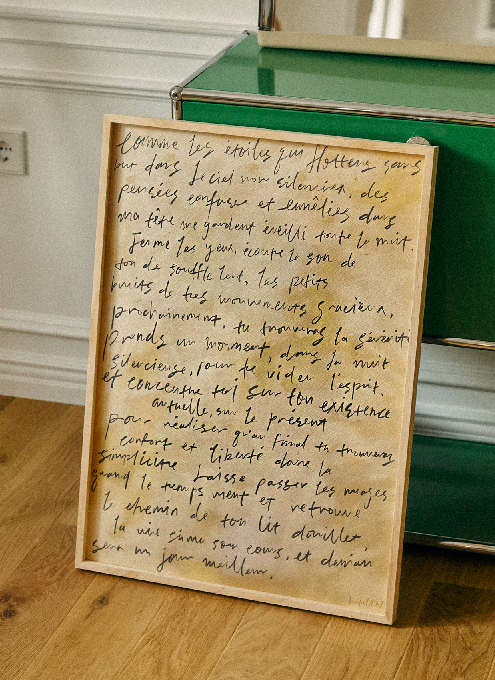 Comme les étoiles qui flottent sans
but dans le ciel noir silencieux, des
pensées confuses et emmêlées dans
ma tête me gardent éveillé toute la nuit.
Ferme les yeux, écoute le son de
ton souffle lent, les petits
bruits de tes mouvements gracieux,
prochainement, tu trouveras la sérénité
prends un moment, dans la nuit
silencieuse, pour te vider l'esprit.
et concentre toi sur ton existence
actuelle, sur le présent
pour réaliser qu'au final tu trouveras
confort et liberté dans la
simplicité Laisse passer les nuages
quand le temps vient et retrouve
le chemin de ton lit douillet,
la vie suit son cours, et demain
sera un jour meilleur.